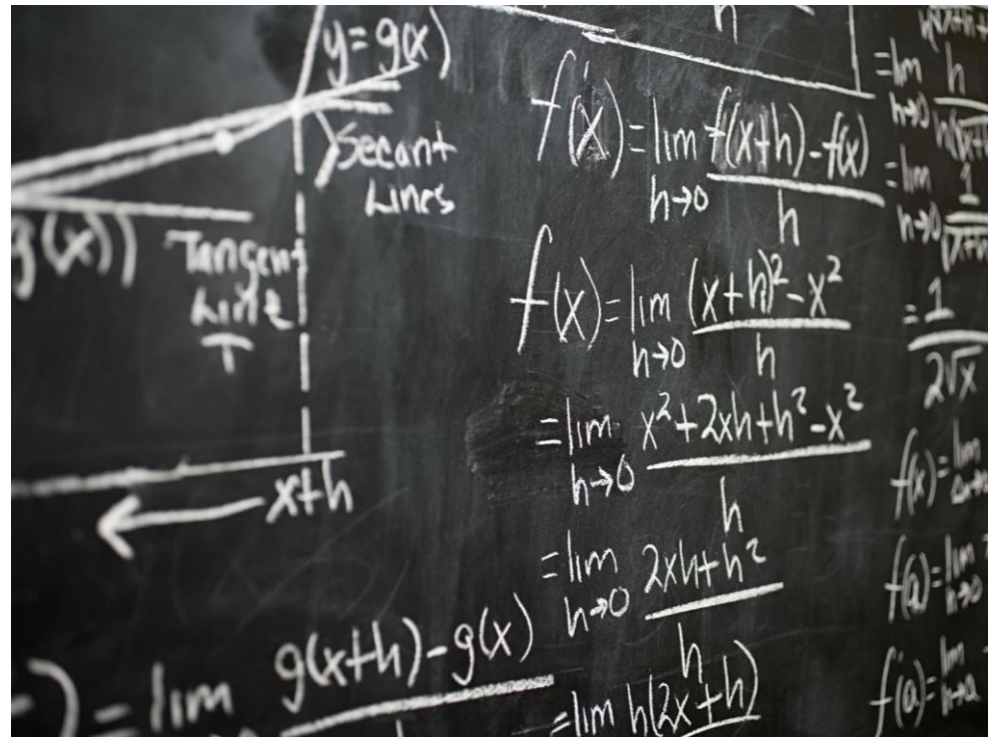 y = g(x)
Secant
Lines
g(x))
Tangent
Line
T
x+h
) = lim g(x+h) - g(x)
h
f'(x) = lim f(x+h) - f(x)
h→0 h
f(x) = lim (x+h)² - x²
h→0 h
= lim x² + 2xh + h² - x²
h→0 h
= lim 2xh + h²
h→0 h
= lim h(2x + h)
= lim
h→0 h
= lim 1
h→0
= 1
2√x
f(x) = lim
f(a) = lim
h→0
f'(a) = lim
h→a